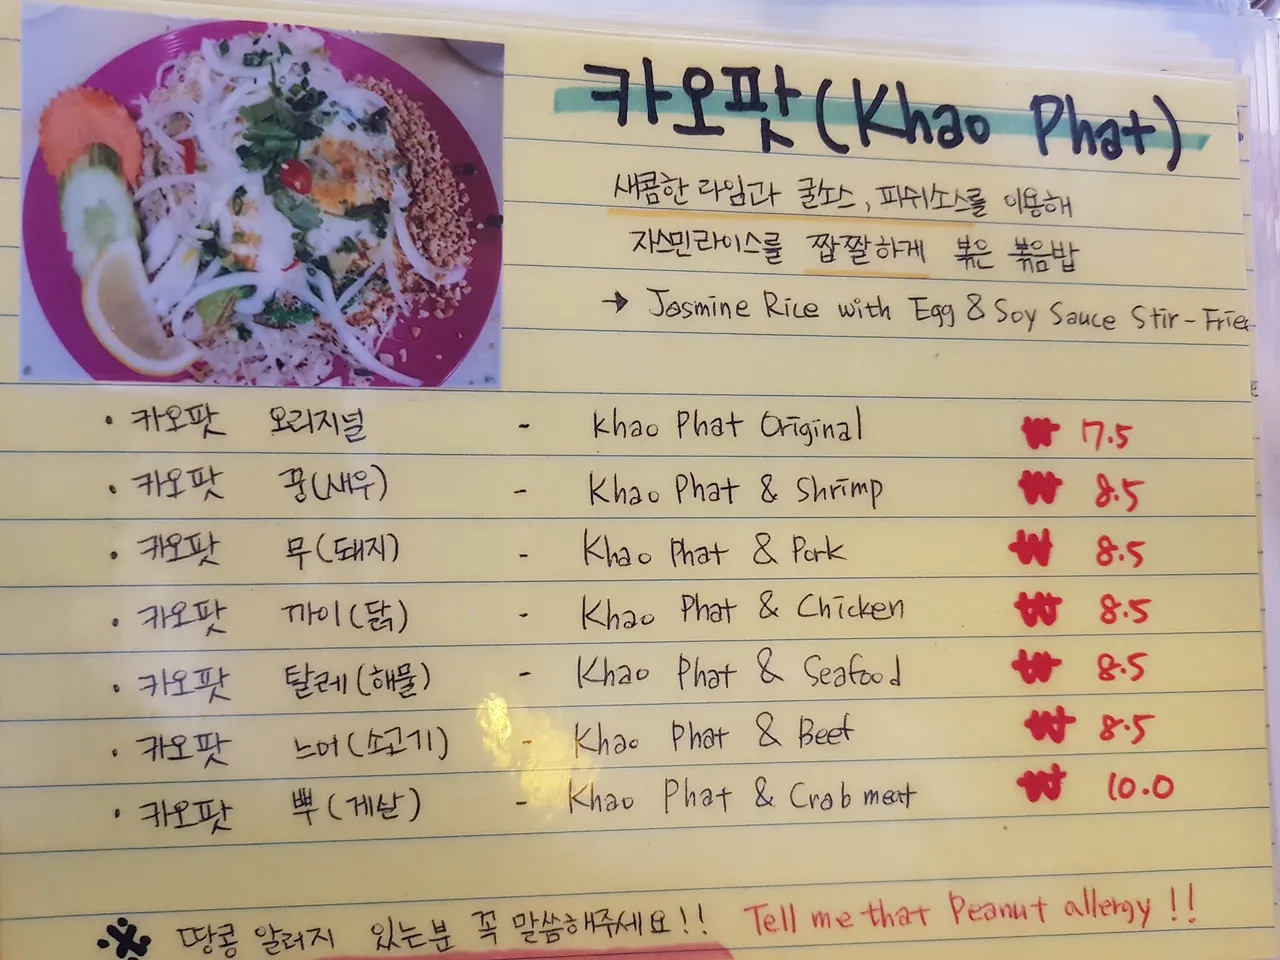 카오팟 (Khao Phat)
새콤한 라임과 굴소스, 피쉬소스를 이용해
자스민라이스를 짭짤하게 볶은 볶음밥
→ Jasmine Rice with Egg & Soy Sauce Stir-Fried
· 카오팟 오리지널 - Khao Phat Original ₩ 7.5
· 카오팟 꿍(새우) - Khao Phat & Shrimp ₩ 8.5
· 카오팟 무(돼지) - Khao Phat & Pork ₩ 8.5
· 카오팟 까이(닭) - Khao Phat & Chicken ₩ 8.5
· 카오팟 탈레(해물) - Khao Phat & Seafood ₩ 8.5
· 카오팟 느어(소고기) - Khao Phat & Beef ₩ 8.5
· 카오팟 뿌(게살) - Khao Phat & Crab meat ₩ 10.0
※ 땅콩 알러지 있는분 꼭 말씀해주세요!! Tell me that Peanut allergy!!